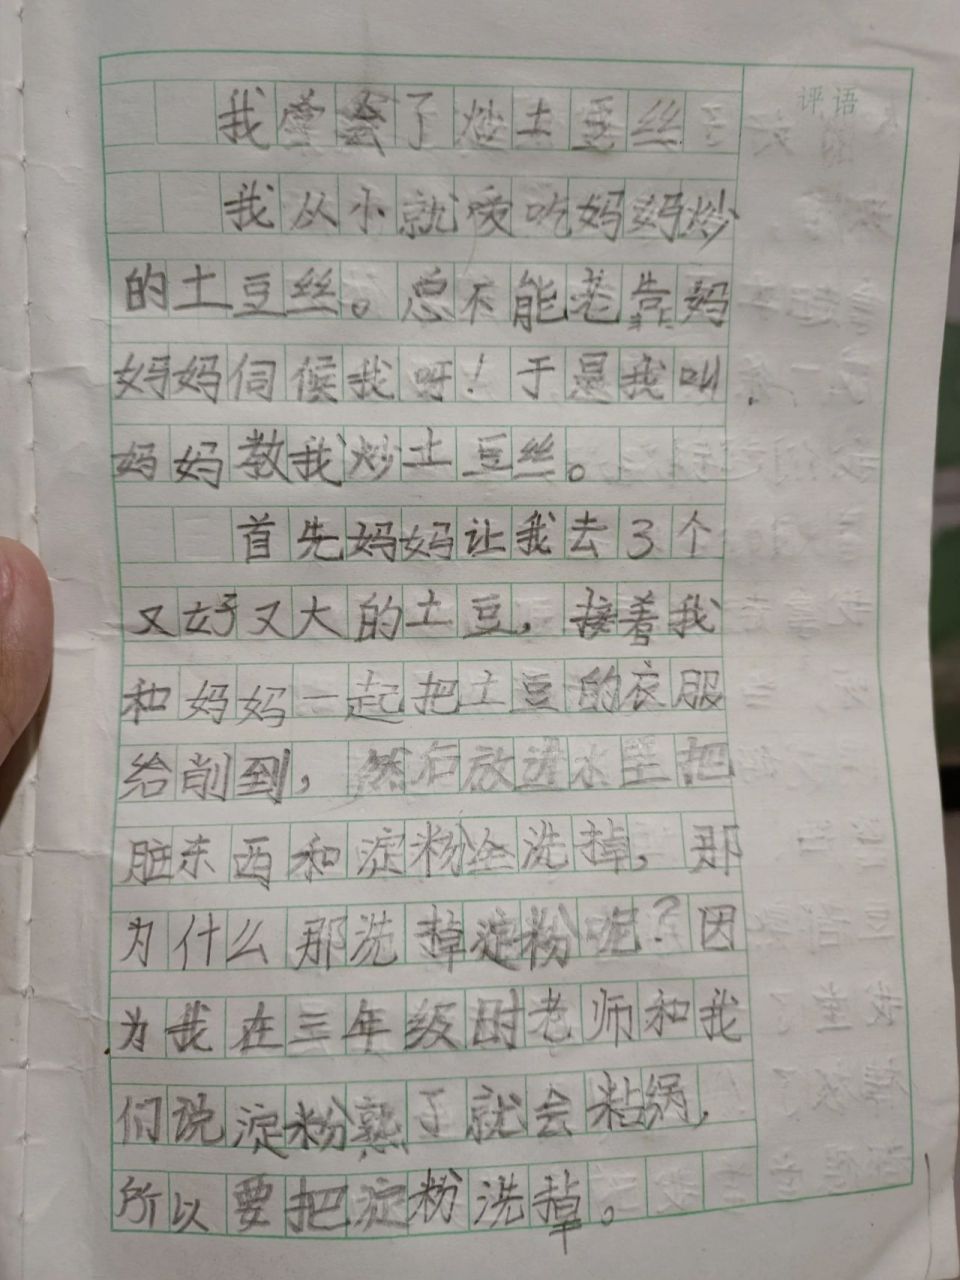 我学会了炒土豆丝
评语
我从小就爱吃妈妈炒
的土豆丝。总不能老靠妈
妈妈伺候我呀！于是我叫
妈妈教我炒土豆丝。
首先妈妈让我去3个
又好又大的土豆，接着我
和妈妈一起把土豆的衣服
给削到，然后放进水里把
脏东西和淀粉全洗掉，那
为什么那洗掉淀粉呢？因
为我在三年级时老师和我
们说淀粉熟了就会粘锅，
所以要把淀粉洗掉。